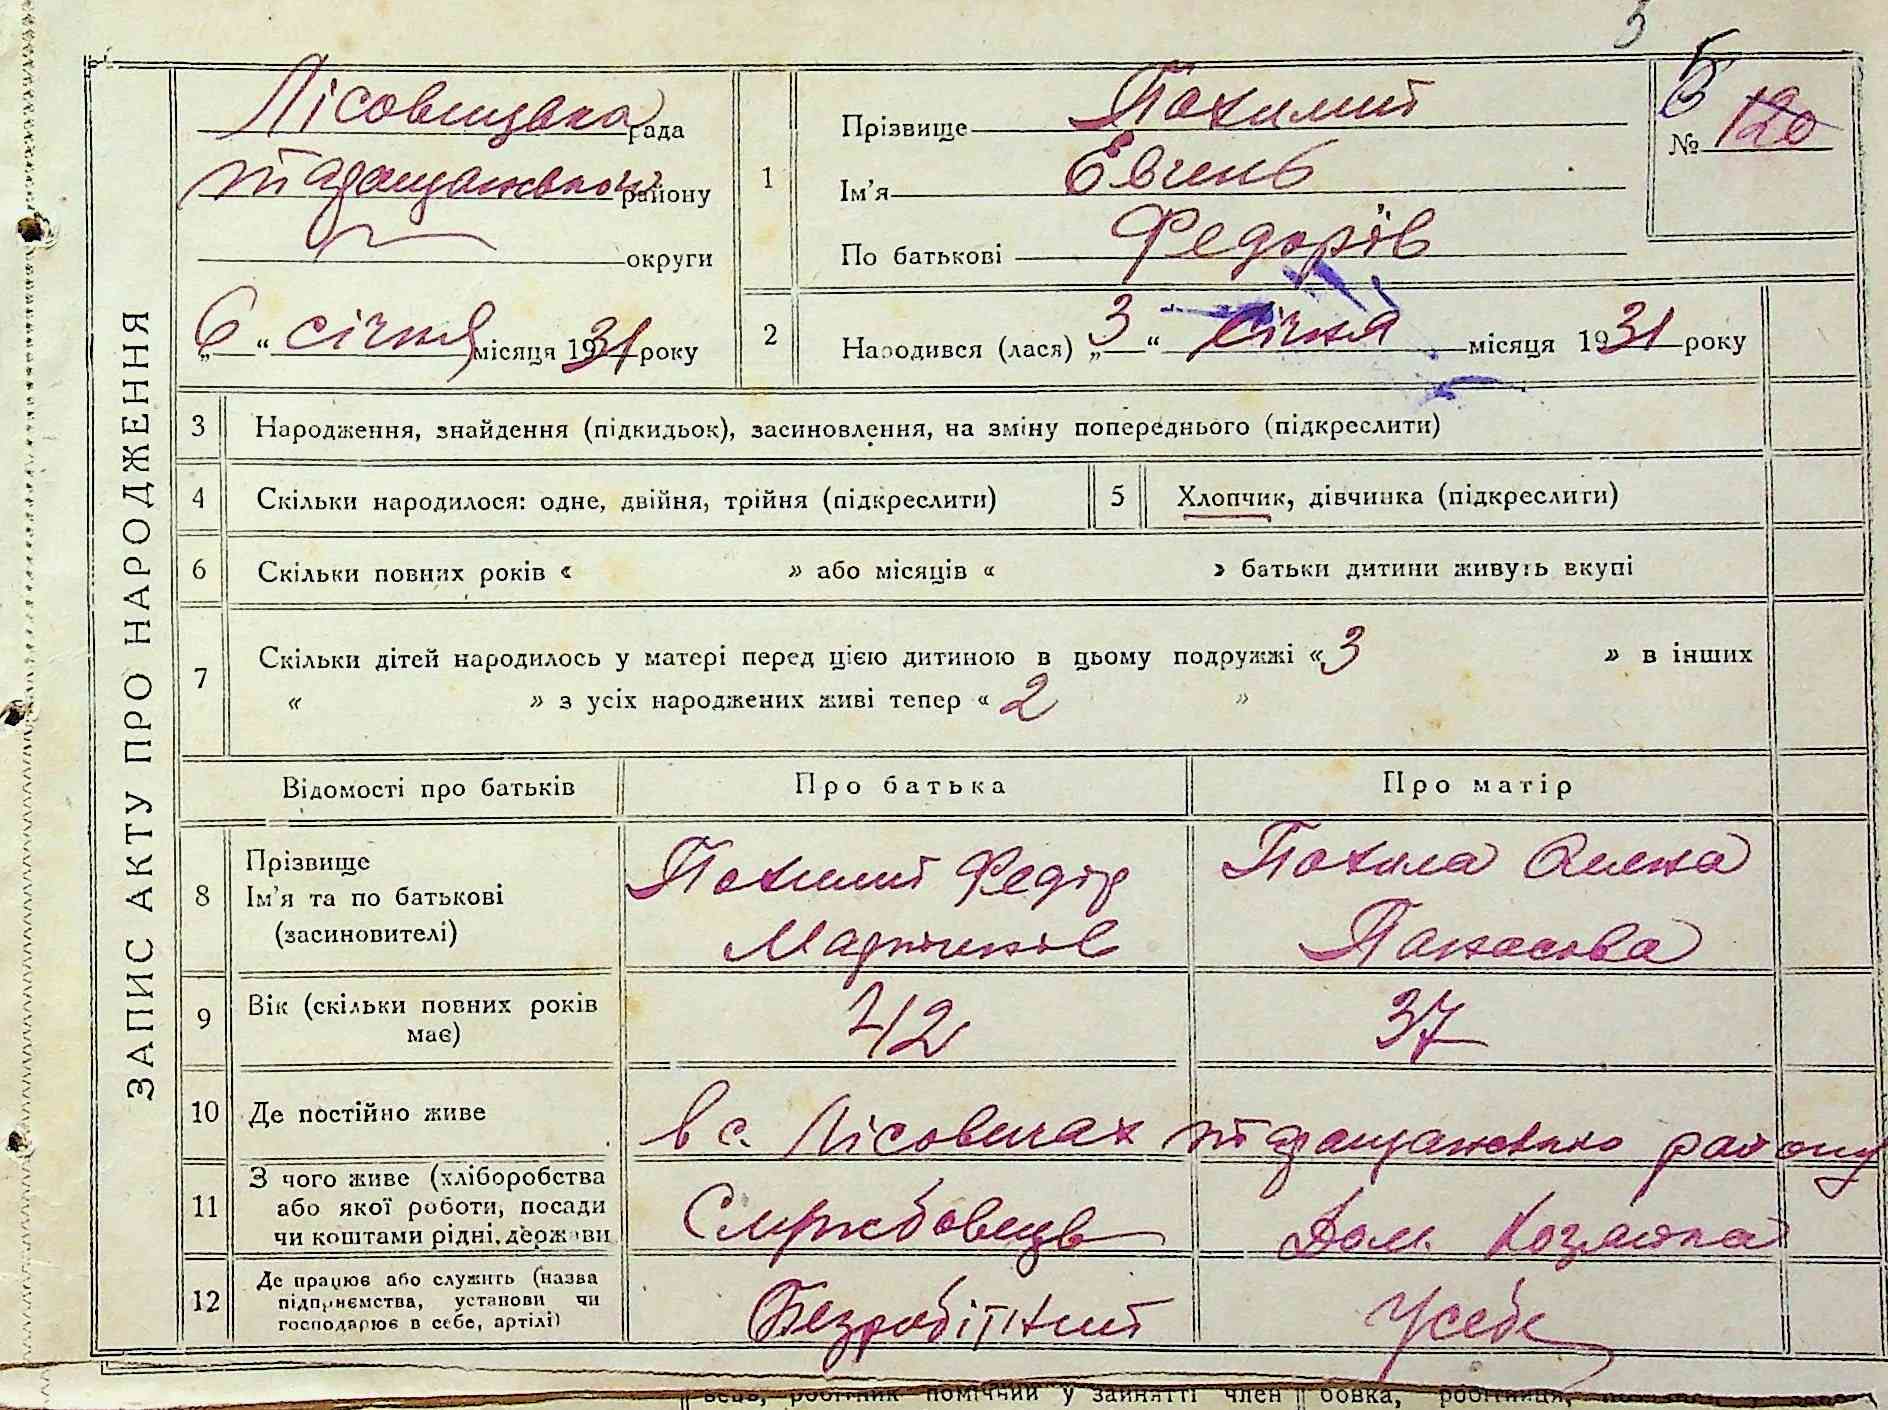 5
ЗАПИС АКТУ ПРО НАРОДЖЕННЯ
Лісовицька рада
Таращанського району
округи
„6“ січня місяця 1931 року
1
Прізвище Похилий
Ім'я Евгень
По батькові Федорів
№ 120
5
2
Народився (лася) „3“ січня місяця 1931 року
3 Народження, знайдення (підкидьок), засиновлення, на зміну попереднього (підкреслити)
4 Скільки народилося: одне, двійня, трійня (підкреслити)
5 Хлопчик, дівчинка (підкреслити)
6 Скільки повних років « » або місяців « » батьки дитини живуть вкупі
7 Скільки дітей народилось у матері перед цією дитиною в цьому подружжі «3 » в інших
« » з усіх народжених живі тепер «2 »
Відомості про батьків Про батька Про матір
8 Прізвище
Ім'я та по батькові
(засиновителі)
Похилий Федір
Похила Олена
Панасова
9 Вік (скільки повних років
має)
42 37
10 Де постійно живе в с. Лісовичах Таращанського району
11 З чого живе (хліборобства
або якої роботи, посади
чи коштами рідні, держави
Службовець Дом. хозяйка
12 Де працює або служить (назва
підприємства, установи чи
господарює в себе, артілі)
Безробітний У себе
робітник помічний у занятті член бовка, робітниця,